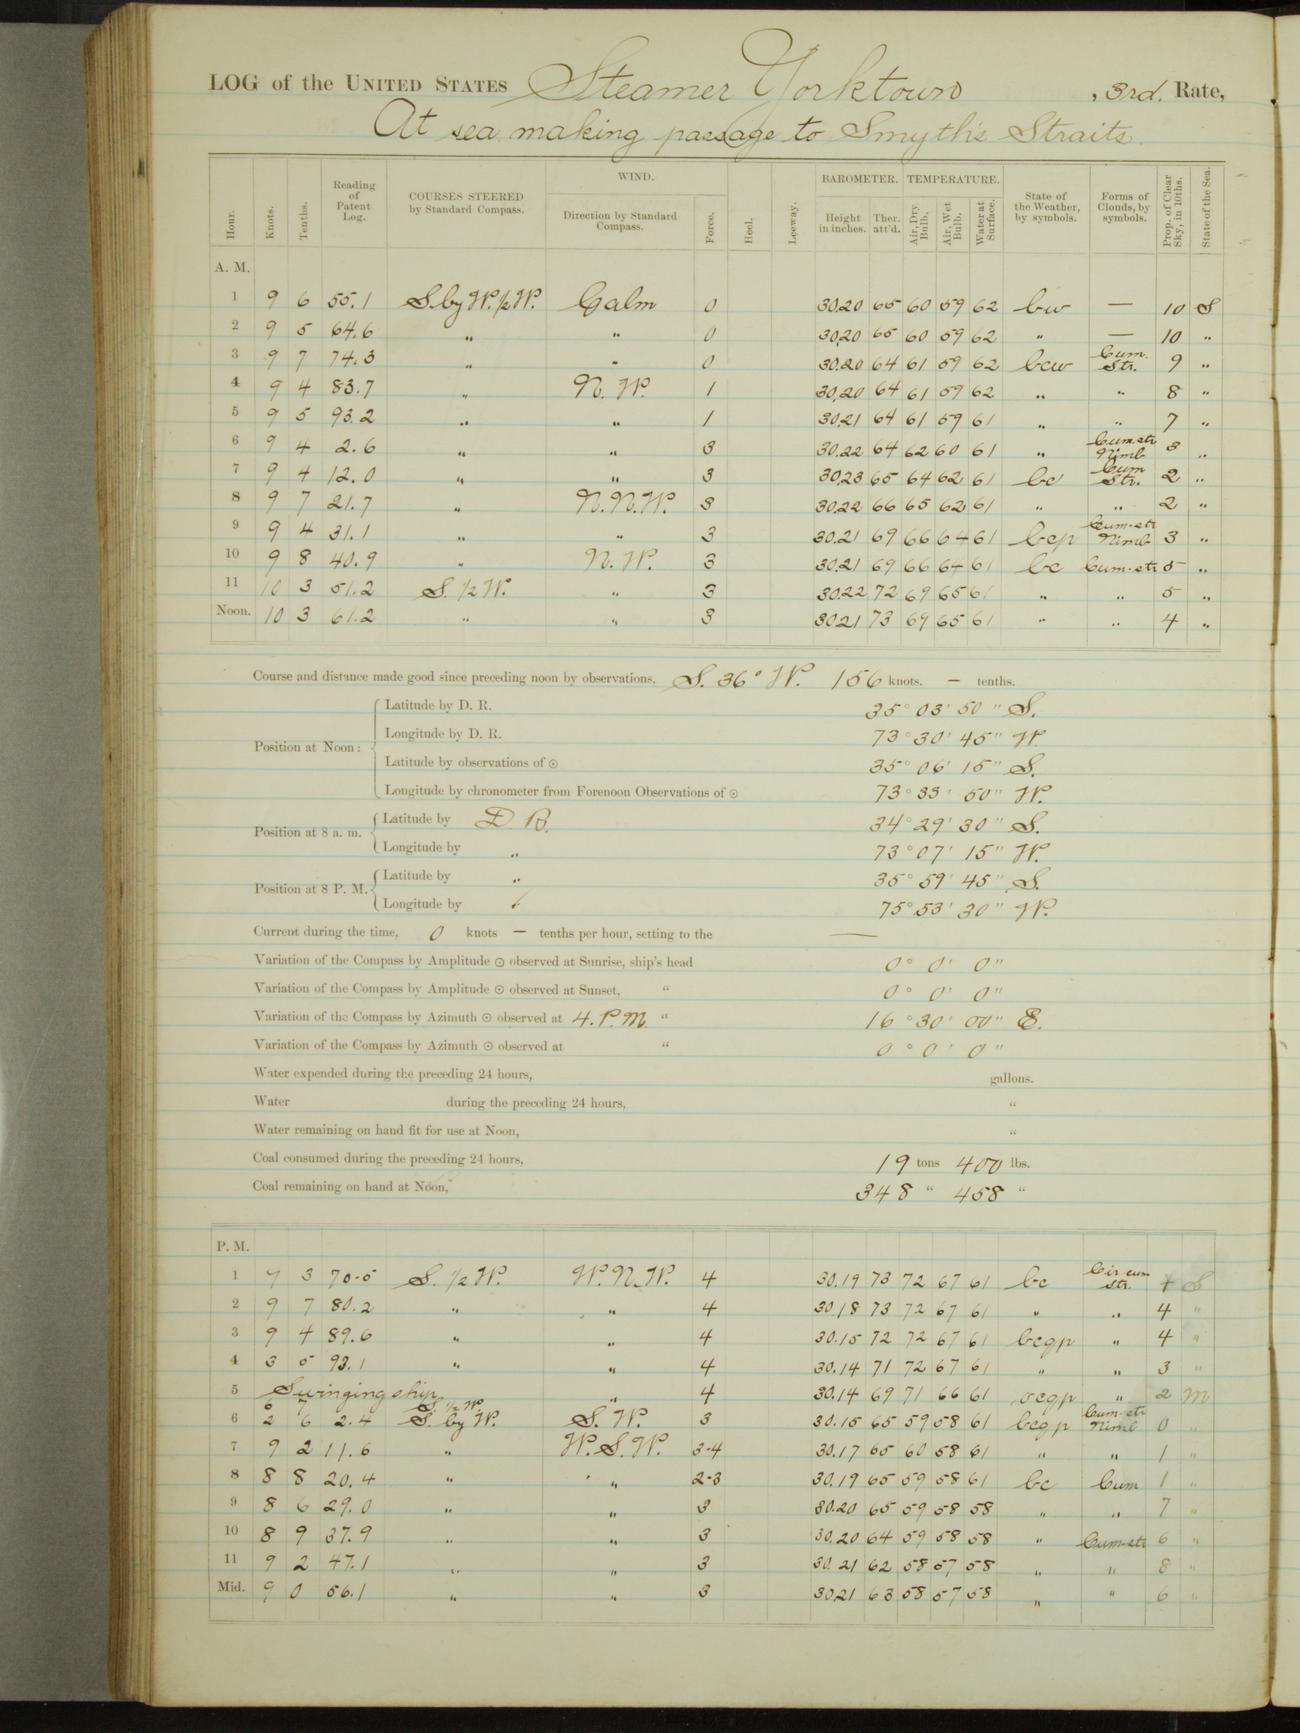 LOG of the UNITED STATES Steamer Yorktown, 3rd. Rate,
At sea making passage to Smyth's Straits.
Hour. Knots. Tenths. Reading of Patent Log. COURSES STEERED by Standard Compass. WIND. Direction by Standard Compass. Force. Heel. Leeway. BAROMETER. Height in inches. Ther. att'd. TEMPERATURE. Air, Dry Bulb. Air, Wet Bulb. Water at Surface. State of the Weather, by symbols. Forms of Clouds, by symbols. Prop. of Clear Sky, in 10ths. State of the Sea.
A. M.
1 9 6 55.1 S. by W. 1/2 W. Calm 0 30.20 65 60 59 62 bw — 10 S
2 9 5 64.6 " " 0 30.20 65 60 59 62 " — 10 "
3 9 7 74.3 " " 0 30.20 64 61 59 62 bcw Cum. Str. 9 "
4 9 4 83.7 " N. W. 1 30.20 64 61 59 62 " " 8 "
5 9 5 93.2 " " 1 30.21 64 61 59 61 " " 7 "
6 9 4 2.6 " " 3 30.22 64 62 60 61 " Cum-str Nimb 3 "
7 9 4 12.0 " " 3 30.23 65 64 62 61 bc Cum Str. 2 "
8 9 7 21.7 " N. N. W. 3 30.22 66 65 62 61 " " 2 "
9 9 4 31.1 " " 3 30.21 69 66 64 61 bcp Cum-str Nimb 3 "
10 9 8 40.9 " N. W. 3 30.21 69 66 64 61 bc Cum-str 5 "
11 10 3 51.2 S. 1/2 W. " 3 30.22 72 69 65 61 " " 5 "
Noon. 10 3 61.2 " " 3 30.21 73 69 65 61 " " 4 "
Course and distance made good since preceding noon by observations, S. 36° W. 156 knots. — tenths.
Position at Noon:
Latitude by D. R. 35° 03' 50" S.
Longitude by D. R. 73° 30' 45" W.
Latitude by observations of ☉ 35° 06' 15" S.
Longitude by chronometer from Forenoon Observations of ☉ 73° 33' 50" W.
Position at 8 a. m.
Latitude by D R. 34° 29' 30" S.
Longitude by " 73° 07' 15" W.
Position at 8 P. M.
Latitude by " 35° 59' 45" S.
Longitude by 75° 53' 30" W.
Current during the time, 0 knots — tenths per hour, setting to the —
Variation of the Compass by Amplitude ☉ observed at Sunrise, ship's head 0° 0' 0"
Variation of the Compass by Amplitude ☉ observed at Sunset, " 0° 0' 0"
Variation of the Compass by Azimuth ☉ observed at 4. P. M. " 16° 30' 00" E.
Variation of the Compass by Azimuth ☉ observed at " 0° 0' 0"
Water expended during the preceding 24 hours, gallons.
Water during the preceding 24 hours, "
Water remaining on hand fit for use at Noon, "
Coal consumed during the preceding 24 hours, 19 tons 400 lbs.
Coal remaining on hand at Noon, 348 " 458 "
P. M.
1 9 3 70.5 S. 1/2 W. W. N. W. 4 30.19 73 72 67 61 bc Cir-cum Str. 4 S
2 9 7 80.2 " " 4 30.18 73 72 67 61 " " 4 "
3 9 4 89.6 " " 4 30.15 72 72 67 61 bcqp " 4 "
4 3 5 93.1 " " 4 30.14 71 72 67 61 " " 3 "
5 Swinging ship " 4 30.14 69 71 66 61 ocqp " 2 M
6 7 S. 1/2 W.
6 2 6 2.4 S. by W. S. W. 3 30.15 65 59 58 61 bcqp Cum-str Nimb 0 "
7 9 2 11.6 " W. S. W. 3-4 30.17 65 60 58 61 " " 1 "
8 8 8 20.4 " " 2-3 30.19 65 59 58 61 bc Cum 1 "
9 8 6 29.0 " " 3 30.20 65 59 58 58 " " 7 "
10 8 9 37.9 " " 3 30.20 64 59 58 58 " Cum-str 6 "
11 9 2 47.1 " " 3 30.21 62 58 57 58 " " 8 "
Mid. 9 0 56.1 " " 3 30.21 63 58 57 58 " " 6 "